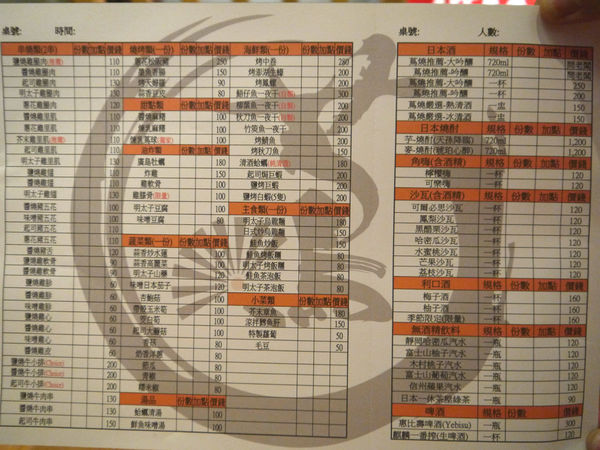 桌號: 時間:
串燒類(2串) 份數 加點 價錢
鹽燒雞腿肉(推薦) 110
醬燒雞腿肉 110
起司雞腿肉 110
明太子雞腿肉 130
蔥花雞腿肉
鹽燒雞里肌
醬燒雞里肌
蔥花雞里肌 110
芥末雞里肌(推薦) 110
起司雞里肌 110
明太子雞里肌 130
鹽燒雞翅
醬燒雞翅
明太子雞翅
鹽燒豬五花
味噌豬五花
起司豬五花
蔥花豬五花
鹽燒豬舌
鹽燒雞軟骨
醬燒雞軟骨
鹽燒雞胗
醬燒雞胗
鹽燒雞心
醬燒雞心
鹽燒雞皮
醬燒雞皮
鹽燒牛小排(Choice) 200
醬燒牛小排(Choice) 200
起司牛小排(Choice) 200
鹽燒牛肉串 130
醬燒牛肉串 130
起司牛肉串 150
燒烤類(一份) 份數 加點 價錢
蔥花松阪豬 250
魚卵香腸 150
烤天婦羅
蒜香豆皮 80
甜點類 份數 加點 價錢
醬燒麻糬 100
煉乳麻糬 100
煉乳馬球(獨家) 100
油炸類 份數 加點 價錢
廣島牡蠣 180
炸雞 150
雞軟骨 150
雞膝骨(限量)
明太子豆腐
味噌豆腐
蔬菜類(一份) 份數 加點 價錢
蒜香炒水蓮 100
蒜香高麗菜 100
明太子山藥 120
味噌日本茄子 120
杏鮑菇 100
帶殼玉米筍 100
筊白筍 100
起司大蘑菇
香菇
奶香洋蔥
節瓜 80
青椒 80
糯米椒 80
湯品 份數 加點 價錢
蛤蠣清湯 100
鮮魚味噌湯 100
海鮮類(一份) 份數 加點 價錢
烤中卷 280
烤澎湖生蠔 200
烤鳳螺
鯖仔魚一夜干(自製)
柳葉魚一夜干(自製)
秋刀魚一夜干(自製)
竹筴魚一夜干
烤鯛魚 150
烤秋刀魚 150
清酒蛤蠣(純清酒) 180
起司焗巨蝦 200
鹽烤巨蝦 200
鹽烤白蝦(5隻) 200
主食類(一份) 份數 加點 價錢
明太子烏龍麵 180
日式炒烏龍麵 150
鮭魚炒飯 150
鮭魚烤飯糰
明太子烤飯糰
鮭魚茶泡飯
明太子茶泡飯
小菜類 份數 加點 價錢
芥末章魚 180
涼拌鱈魚肝 150
特製蘿蔔 50
毛豆 50
桌號: 人數:
日本酒 規格 份數 加點 價錢
蔦燒推薦-大吟釀 720ml 問老闆
蔦燒推薦-吟釀 720ml 問老闆
蔦燒推薦-大吟釀 一杯 250
蔦燒推薦-吟釀 一杯 200
蔦燒嚴選-熱清酒 一壺 150
蔦燒嚴選-水清酒 一壺 150
日本燒酎 規格 份數 加點 價錢
芋-燒酎(天孫降臨) 720ml 1,200
麥-燒酎(琥珀心醉) 720ml 1,200
角嗨(含酒精) 規格 份數 加點 價錢
檸檬嗨 一杯 120
可樂嗨 一杯 120
沙瓦(含酒精) 規格 份數 加點 價錢
可爾必思沙瓦 一杯 120
鳳梨沙瓦 一杯 120
黑醋栗沙瓦 一杯 120
哈密瓜沙瓦 一杯 120
水蜜桃沙瓦 一杯 120
芒果沙瓦 一杯 120
荔枝沙瓦 一杯 120
利口酒 規格 份數 加點 價錢
梅子酒 一杯 160
柚子酒 一杯 160
季節限定(限量) 一杯
無酒精飲料 規格 份數 加點 價錢
靜岡哈密瓜汽水 一瓶 120
富士山柚子汽水 一瓶 120
木村桃子汽水 一瓶 120
富士山葡萄汽水 一瓶 120
信州蘋果汽水 一瓶 120
日本一休茶屋綠茶 一瓶
啤酒 規格 份數 加點 價錢
惠比壽啤酒(Yebisu) 一瓶 300
麒麟一番搾(生啤酒) 一杯 120